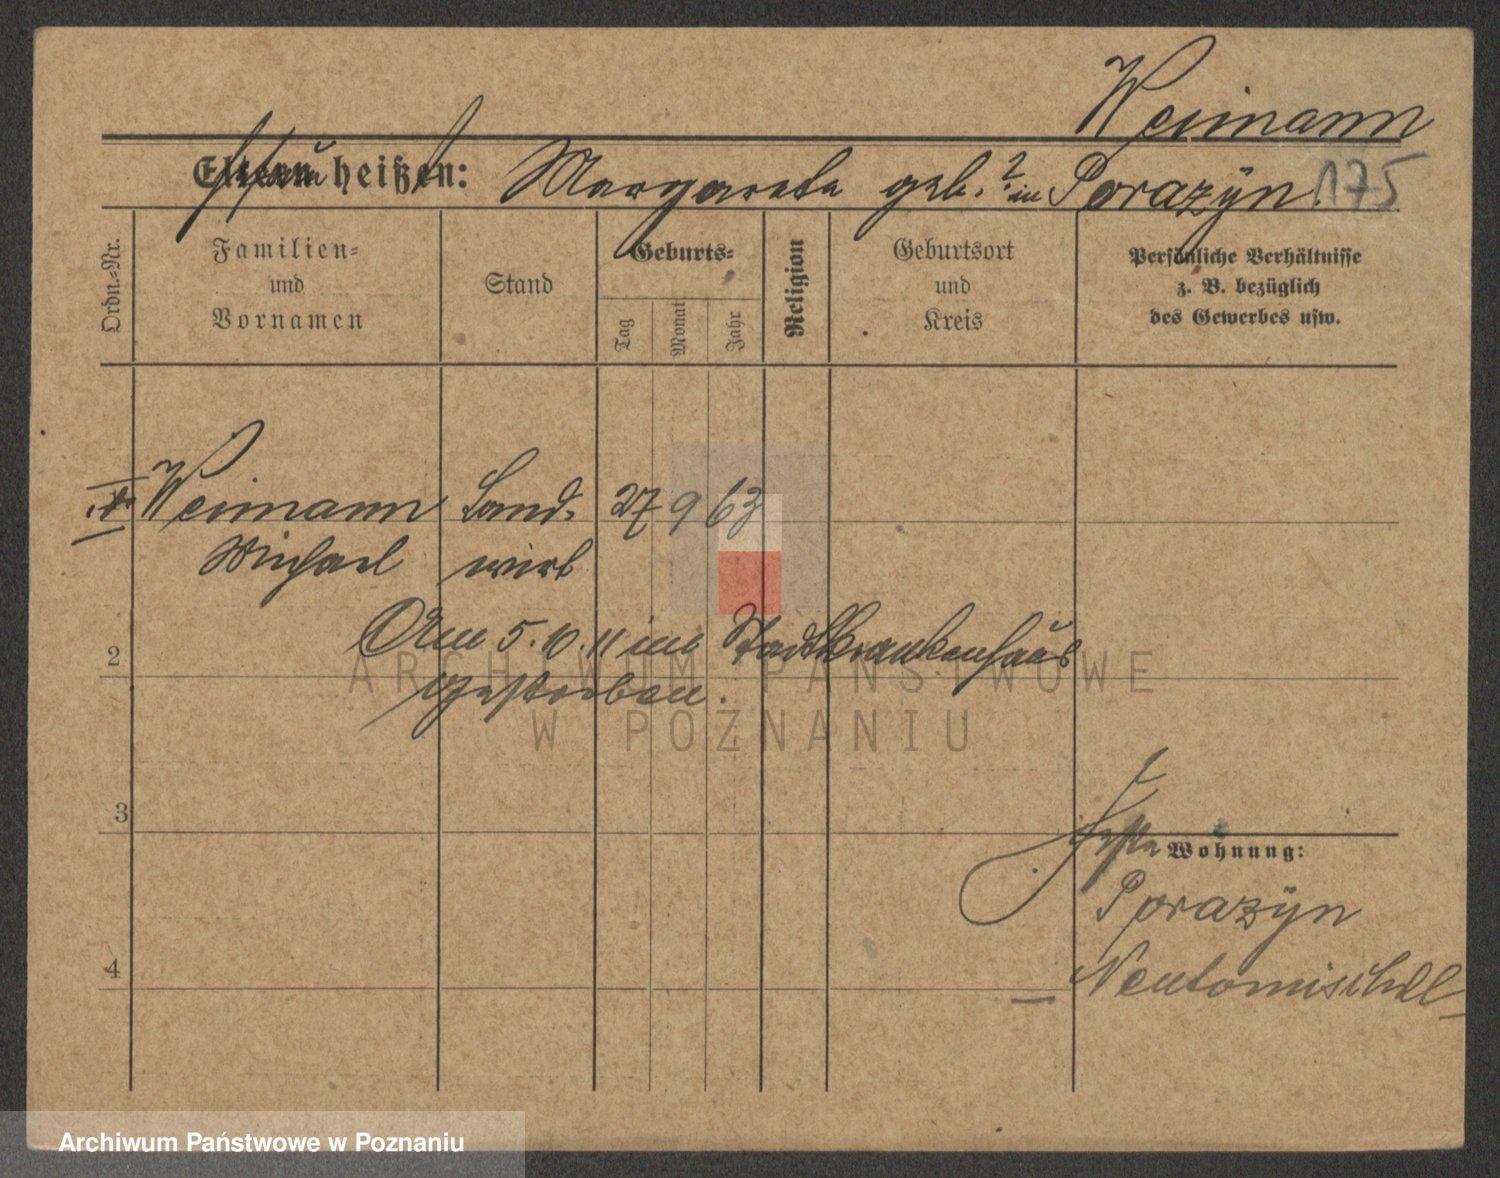 Weimann
Eltern heißen: Margarete geb. ? in Porazÿn
175
Ordn.-Nr.
Familien-
und
Vornamen
Stand
Geburts-
Tag
Monat
Jahr
Religion
Geburtsort
und
Kreis
Persönliche Verhältnisse
z. B. bezüglich
des Gewerbes usw.
Weimann Land- 27 9 63
Michael wirt
Am 5.10.11 im Stadtkrankenhaus
gestorben.
2
3
4
Wohnung:
Porazÿn
Neutomischel
ARCHIWUM PAŃSTWOWE
W POZNANIU
Archiwum Państwowe w Poznaniu